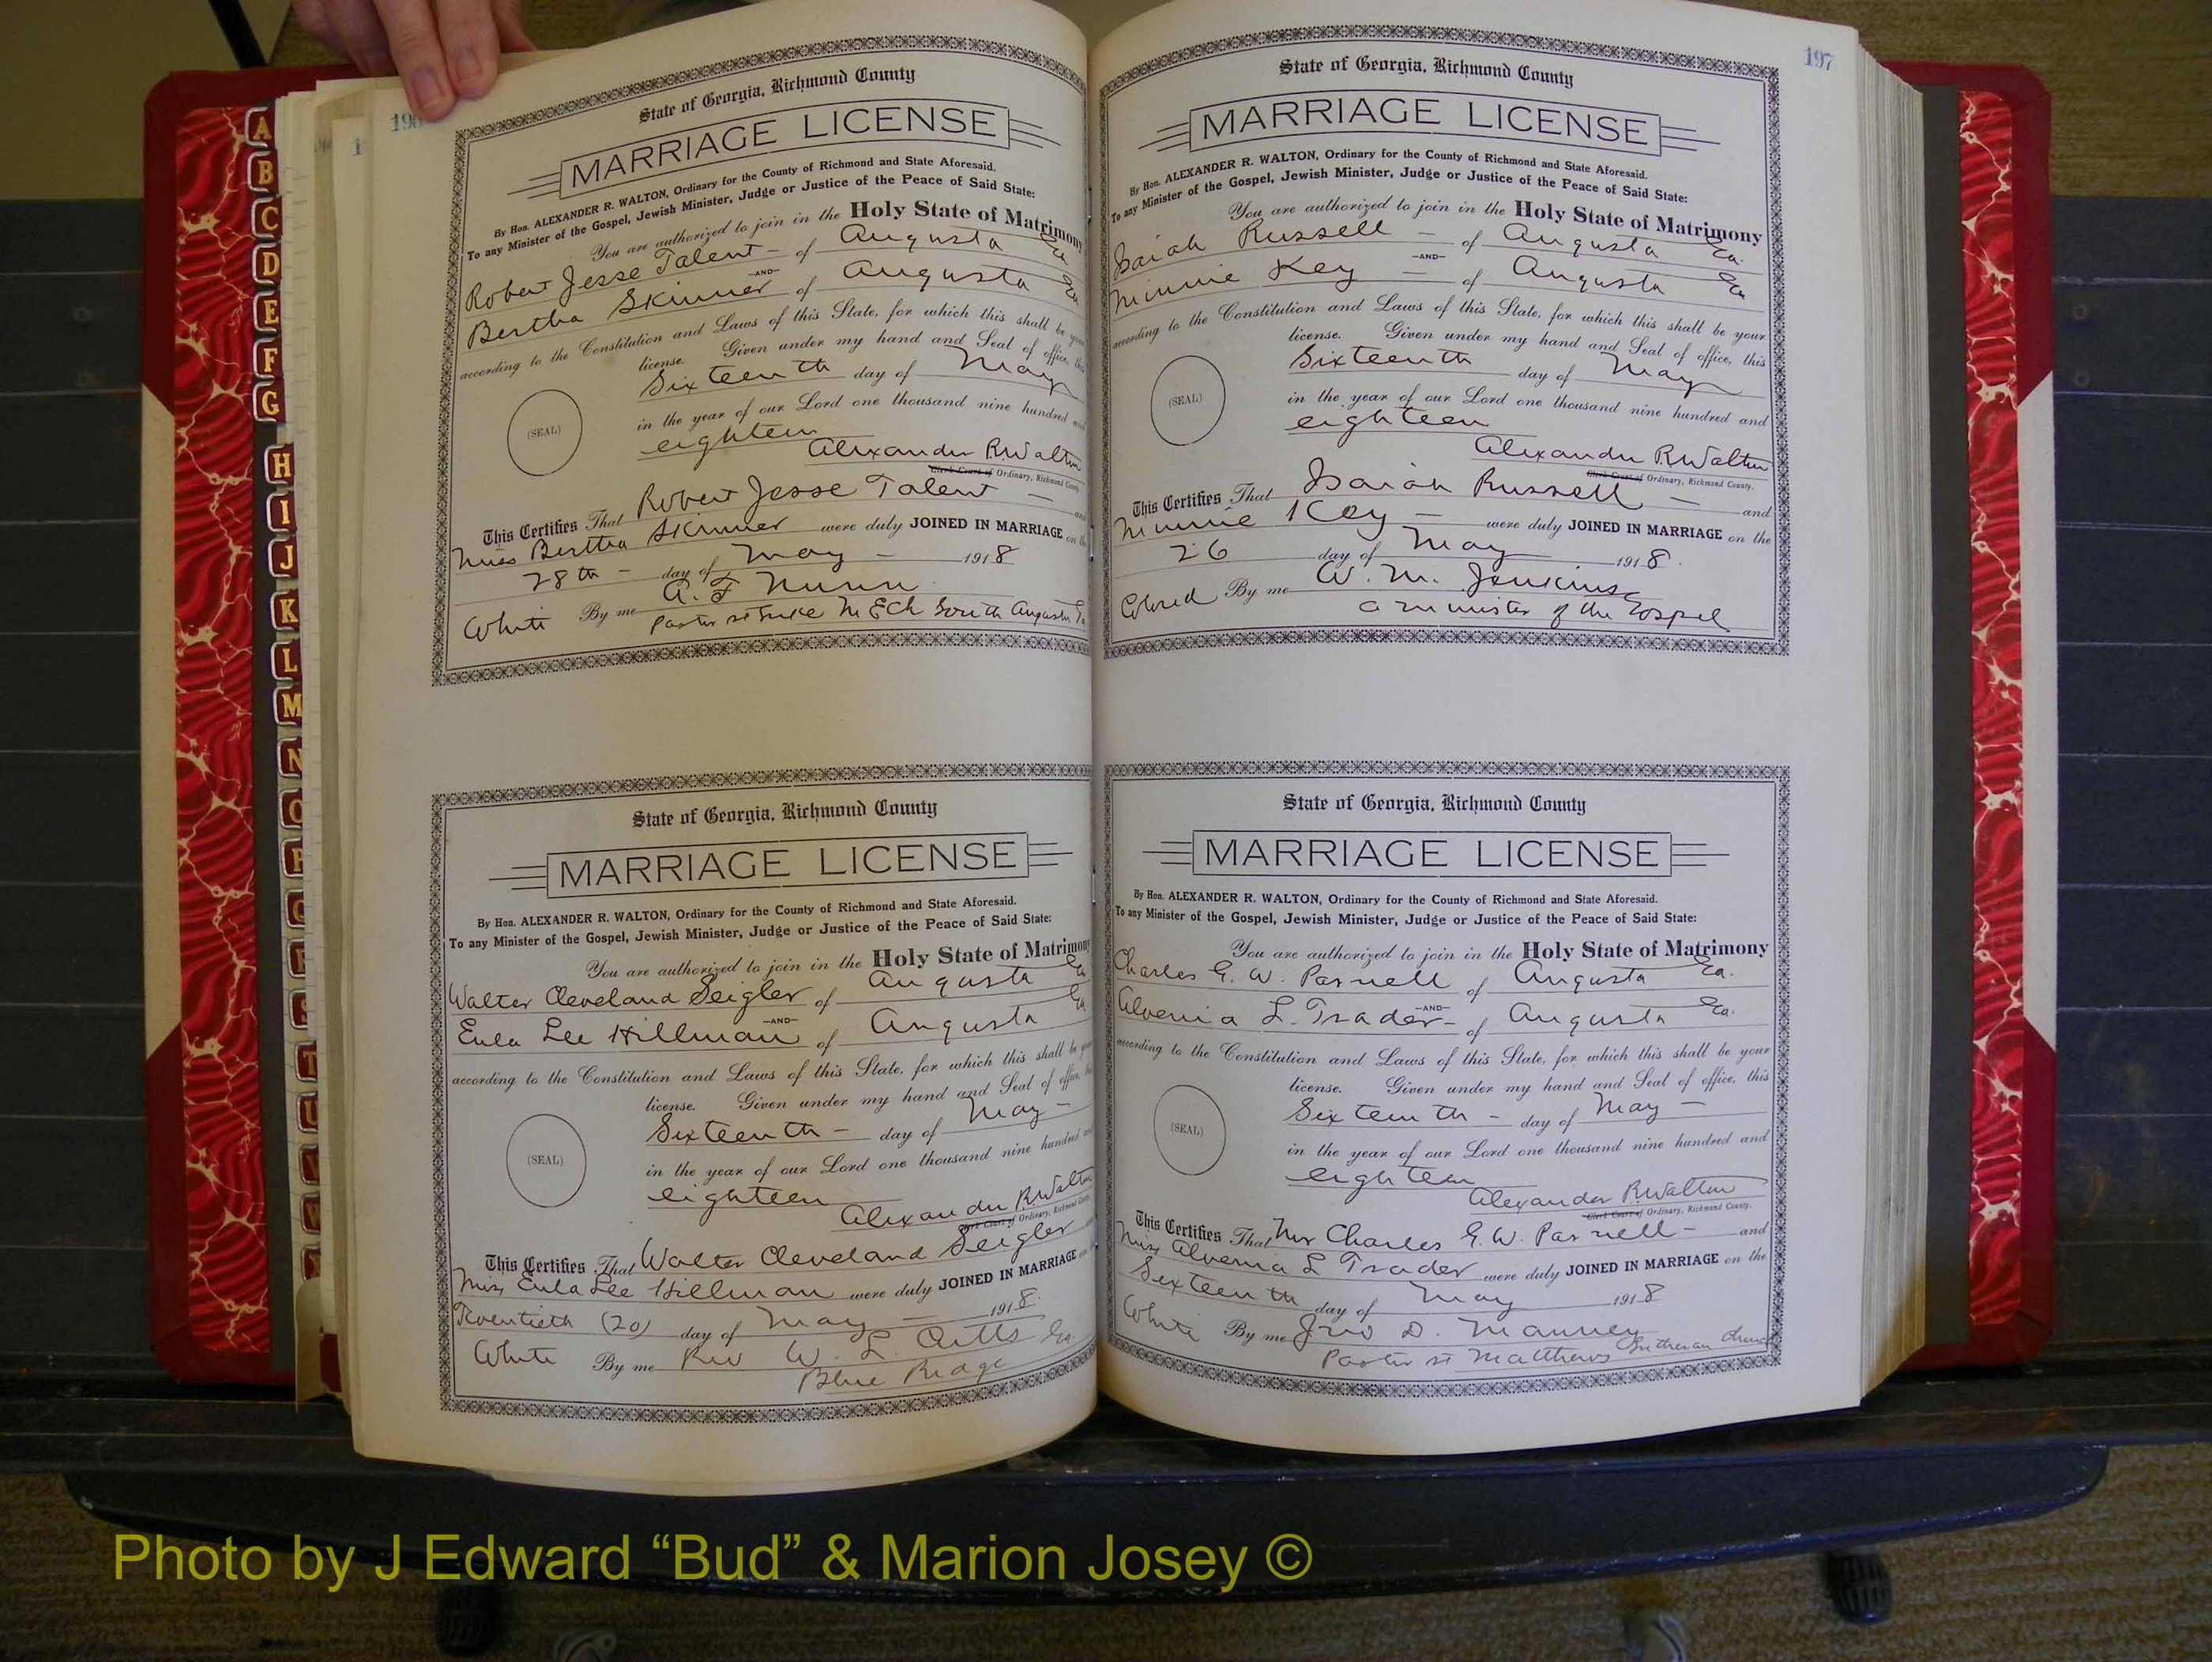 A
B
C
D
E
F
G
H
I
J
K
L
M
N
O
P
Q
R
S
T
U
V
W
State of Georgia, Richmond County
MARRIAGE LICENSE
By Hon. ALEXANDER R. WALTON, Ordinary for the County of Richmond and State Aforesaid.
To any Minister of the Gospel, Jewish Minister, Judge or Justice of the Peace of Said State:
You are authorized to join in the Holy State of Matrimony
Robert Jesse Talent - of Augusta Ga
-AND-
Bertha Skinner of Augusta Ga
according to the Constitution and Laws of this State, for which this shall be your
license. Given under my hand and Seal of office, this
Sixteenth day of May
(SEAL)
in the year of our Lord one thousand nine hundred and
eighteen
Alexander R Walton
Clerk Court of Ordinary, Richmond County.
This Certifies That Robert Jesse Talent - and
Miss Bertha Skinner were duly JOINED IN MARRIAGE on the
28th - day of May - 1918
White By me A. F. Nunn
Pastor St Luke M E Ch South Augusta Ga
State of Georgia, Richmond County
MARRIAGE LICENSE
By Hon. ALEXANDER R. WALTON, Ordinary for the County of Richmond and State Aforesaid.
To any Minister of the Gospel, Jewish Minister, Judge or Justice of the Peace of Said State:
You are authorized to join in the Holy State of Matrimony
Walter Cleveland Seigler of Augusta Ga
-AND-
Eula Lee Hillman of Augusta Ga
according to the Constitution and Laws of this State, for which this shall be your
license. Given under my hand and Seal of office, this
Sixteenth - day of May -
(SEAL)
in the year of our Lord one thousand nine hundred and
eighteen
Alexander R. Walton
Clerk Court of Ordinary, Richmond County.
This Certifies That Walter Cleveland Seigler and
Miss Eula Lee Hillman were duly JOINED IN MARRIAGE on the
Twentieth (20) day of May - 1918.
White By me Rev W. L. Ga.
Blue Ridge
197
State of Georgia, Richmond County
MARRIAGE LICENSE
By Hon. ALEXANDER R. WALTON, Ordinary for the County of Richmond and State Aforesaid.
To any Minister of the Gospel, Jewish Minister, Judge or Justice of the Peace of Said State:
You are authorized to join in the Holy State of Matrimony
Isaiah Russell - of Augusta Ga.
-AND-
Minnie Key - of Augusta Ga
according to the Constitution and Laws of this State, for which this shall be your
license. Given under my hand and Seal of office, this
Sixteenth day of May
(SEAL)
in the year of our Lord one thousand nine hundred and
eighteen
Alexander R. Walton
Clerk Court of Ordinary, Richmond County.
This Certifies That Isaiah Russell - and
Minnie Key - were duly JOINED IN MARRIAGE on the
26 day of May 1918.
Colored By me W. M. Jenkins
a minister of the Gospel
State of Georgia, Richmond County
MARRIAGE LICENSE
By Hon. ALEXANDER R. WALTON, Ordinary for the County of Richmond and State Aforesaid.
To any Minister of the Gospel, Jewish Minister, Judge or Justice of the Peace of Said State:
You are authorized to join in the Holy State of Matrimony
Charles G. W. Parnell of Augusta Ga.
-AND-
Alvenia L. Trader - of Augusta Ga.
according to the Constitution and Laws of this State, for which this shall be your
license. Given under my hand and Seal of office, this
Sixteenth - day of May -
(SEAL)
in the year of our Lord one thousand nine hundred and
eighteen
Alexander R Walton
Clerk Court of Ordinary, Richmond County.
This Certifies That Mr Charles G. W. Parnell - and
Miss Alvenia L Trader were duly JOINED IN MARRIAGE on the
Sixteenth day of May 1918
White By me Jno D. Mauney
Pastor St Matthews Lutheran Church
Photo by J Edward “Bud” & Marion Josey ©